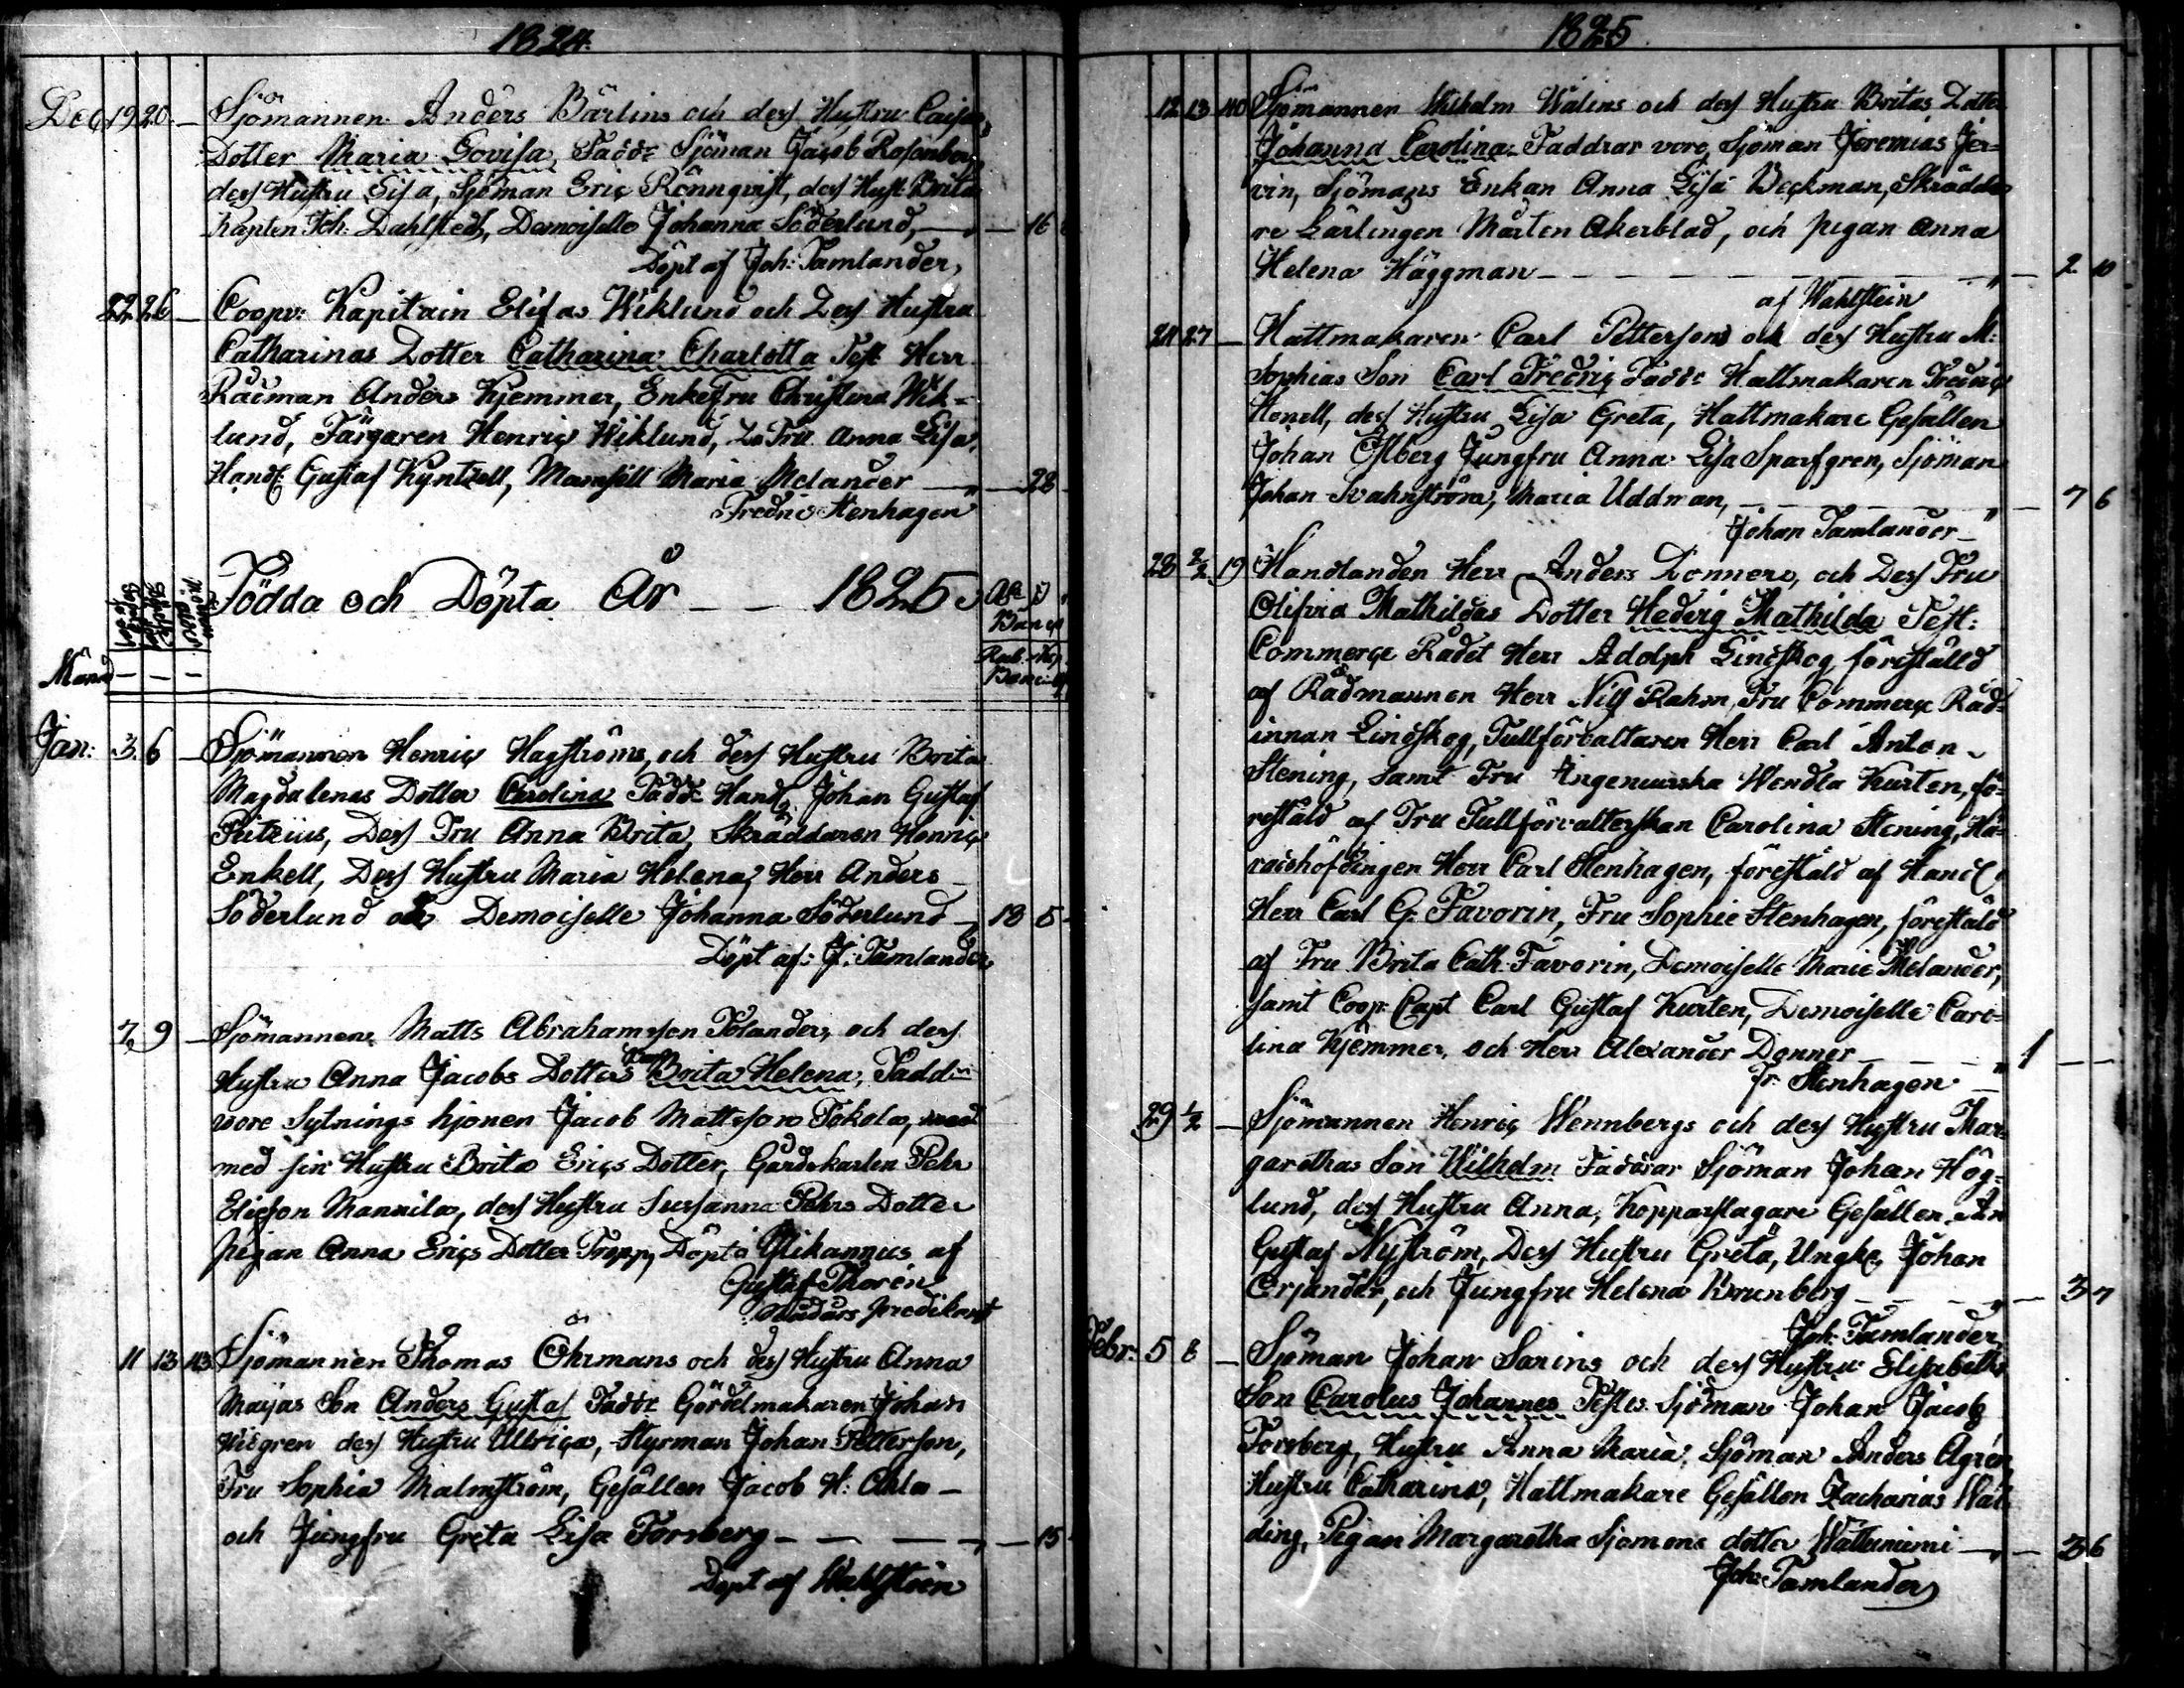 1824.
Dec. 19 20 — Sjömannen Anders Bärlins och dess Hustru Caisas
Dotter Maria Lovisa, Faddr Sjöman Jacob Rosenberg
dess Hustru Lisa, Sjöman Eric Rönnqvist, dess Hust: Brita
Kapten Joh: Dahlstedt, Demoiselle Johanna Söderlund, — 16
Döpt af Joh: Tamlander,
22 26 — Coopv: Kapitain Elifas Wiklund och Dess Hustru
Catharinas Dotter Catharina Charlotta Test Herr
Rådman Anders Kjemmer, Enkefru Christina Wik-
lund, Färgaren Henric Wiklund, Fru Anna Lisa,
Handl: Gustaf Kyntzell, Mamsell Maria Melander — 28
Fredric Stenhagen
Födda och Döpta År — — 1825.
Månd — — —
Jan: 3. 6 — Sjömannen Henric Hagströms, och dess Hustru Brita
Magdalenas Dotter Carolina Faddr Handl: Johan Gustaf
Piteius, Dess Fru Anna Brita, Skräddaren Henric
Enkell, Dess Hustru Maria Helena, Herr Anders
Söderlund och Demoiselle Johanna Söderlund — 13 5
Döpt af: J: Tamlander,
7 9 — Sjömannens Matts Abrahamsson Tolanders, och dess
Hustru Anna Jacobs Dotters Brita Helena, Faddr
vore Sytnings hjonen Jacob Mattsson Tokola,
med sin Hustru Brita Erics Dotter, Gårdskarlen Pehr
Ericson Mannila, dess Hustru Sussanna Pehrs Dotter
pigan Anna Erics Dotter Trapp, Döpt af
Gustaf Thorén
predikant
11 13 43 Sjömannen Thomas Öhrmans och dess Hustru Anna
Majas Son Anders Gustaf Faddr Gördelmakaren Johan
Widgren dess Hustru Ullrica, Styrman Johan Petterson,
Fru Sophia Malmström, Gesällen Jacob H: Ahla —
och Jungfru Greta Lisa Forsberg — — — 15
Döpt af Wahlstein
1825
12 13 40 Sjömannen Wilhelm Walins och dess Hustru Britas Dotter
Johanna Carolina. Faddrar voro, Sjöman Jeremias Jer-
vin, Sjömans Enkan Anna Lisa Beckman, Skrädda-
re Lärlingen Mårten Åkerblad, och pigan Anna
Helena Häggman — — — 2 10
af Wahlstein
24 27 — Hattmakaren Carl Pettersons och dess Hustru M:
Sophias Son Carl Fredric Faddr Hattmakaren Fredric
Honell, dess Hustru Lisa Greta, Hattmakare Gesällen
Johan Östberg Jungfru Anna Lisa Sparfgren, Sjöman
Johan Svahnström, Maria Uddman, — — 7 6
Johan Tamlander
28 2/2 19 Handlanden Herr Anders Donners, och Dess Fru
Olifvia Mathildas Dotter Hedvig Mathilda Test:
Commerce Rådet Herr Adolph Lindskog, föreställd
af Rådmannen Herr Nils Rahm, Fru Commerce Råd-
innan Lindskog, Tullförvaltaren Herr Carl Anton
Stening, samt Fru Ingenieurska Wendla Kurten, fö-
restäld af Fru Tullförvalterskan Carolina Stening, Hä-
radshöfdingen Herr Carl Stenhagen, förestäld af Handl:
Herr Carl G: Favorin, Fru Sophie Stenhagen, förestäld
af Fru Brita Cath: Favorin, Demoiselle Marie Melander,
samt Coop: Capt Carl Gustaf Kurten, Demoiselle Caro-
lina Kjemmer, och Herr Alexander Donner — — 1 —
Fr. Stenhagen
29 1/2 — Sjömannen Henric Wennbergs och dess Hustru Mar-
garethas Son Wilhelm Faddrar Sjöman Johan Hög-
lund, dess Hustru Anna, Kopparslagare Gesällen An
Gustaf Nyström, Dess Hustru Greta, Ungk. Johan
Erjander, och Jungfru Helena Brunberg — — 3 7
Joh: Tamlander
Febr: 5 8 — Sjöman Johan Sarins och dess Hustru Elisabeths
Son Carolus Johannes Testes Sjöman Johan Jacob
Forsberg, Hustru Anna Maria, Sjöman Anders Ågren,
Hustru Catharina, Hattmakare Gesällen Zacharias Wal-
ding, Pigan Margaretha Sjomons dotter — 3 6
Joh: Tamlander